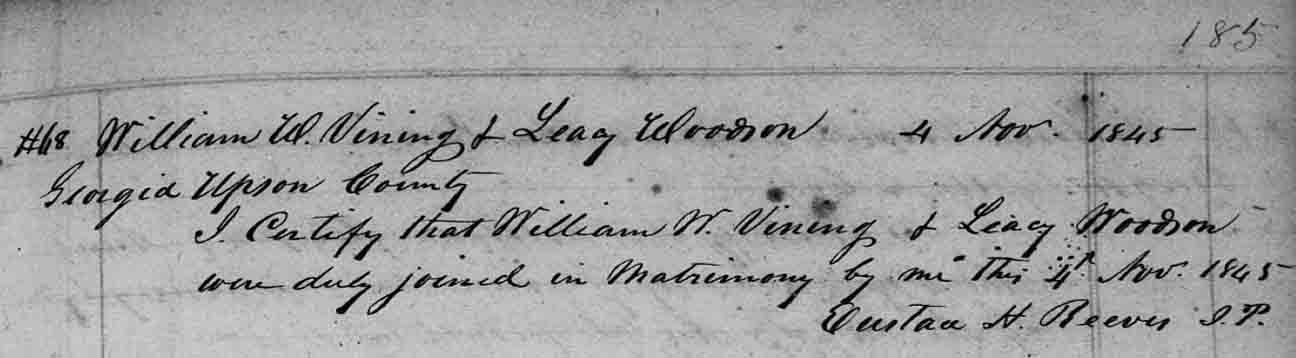 185
#68 William W. Vining & Leacy Woodson 4 Nov. 1845
Georgia Upson County
I. Certify that William W. Vining & Leacy Woodson
were duly joined in Matrimony by me this 4th Nov. 1845
Eustace H. Reeves J.P.